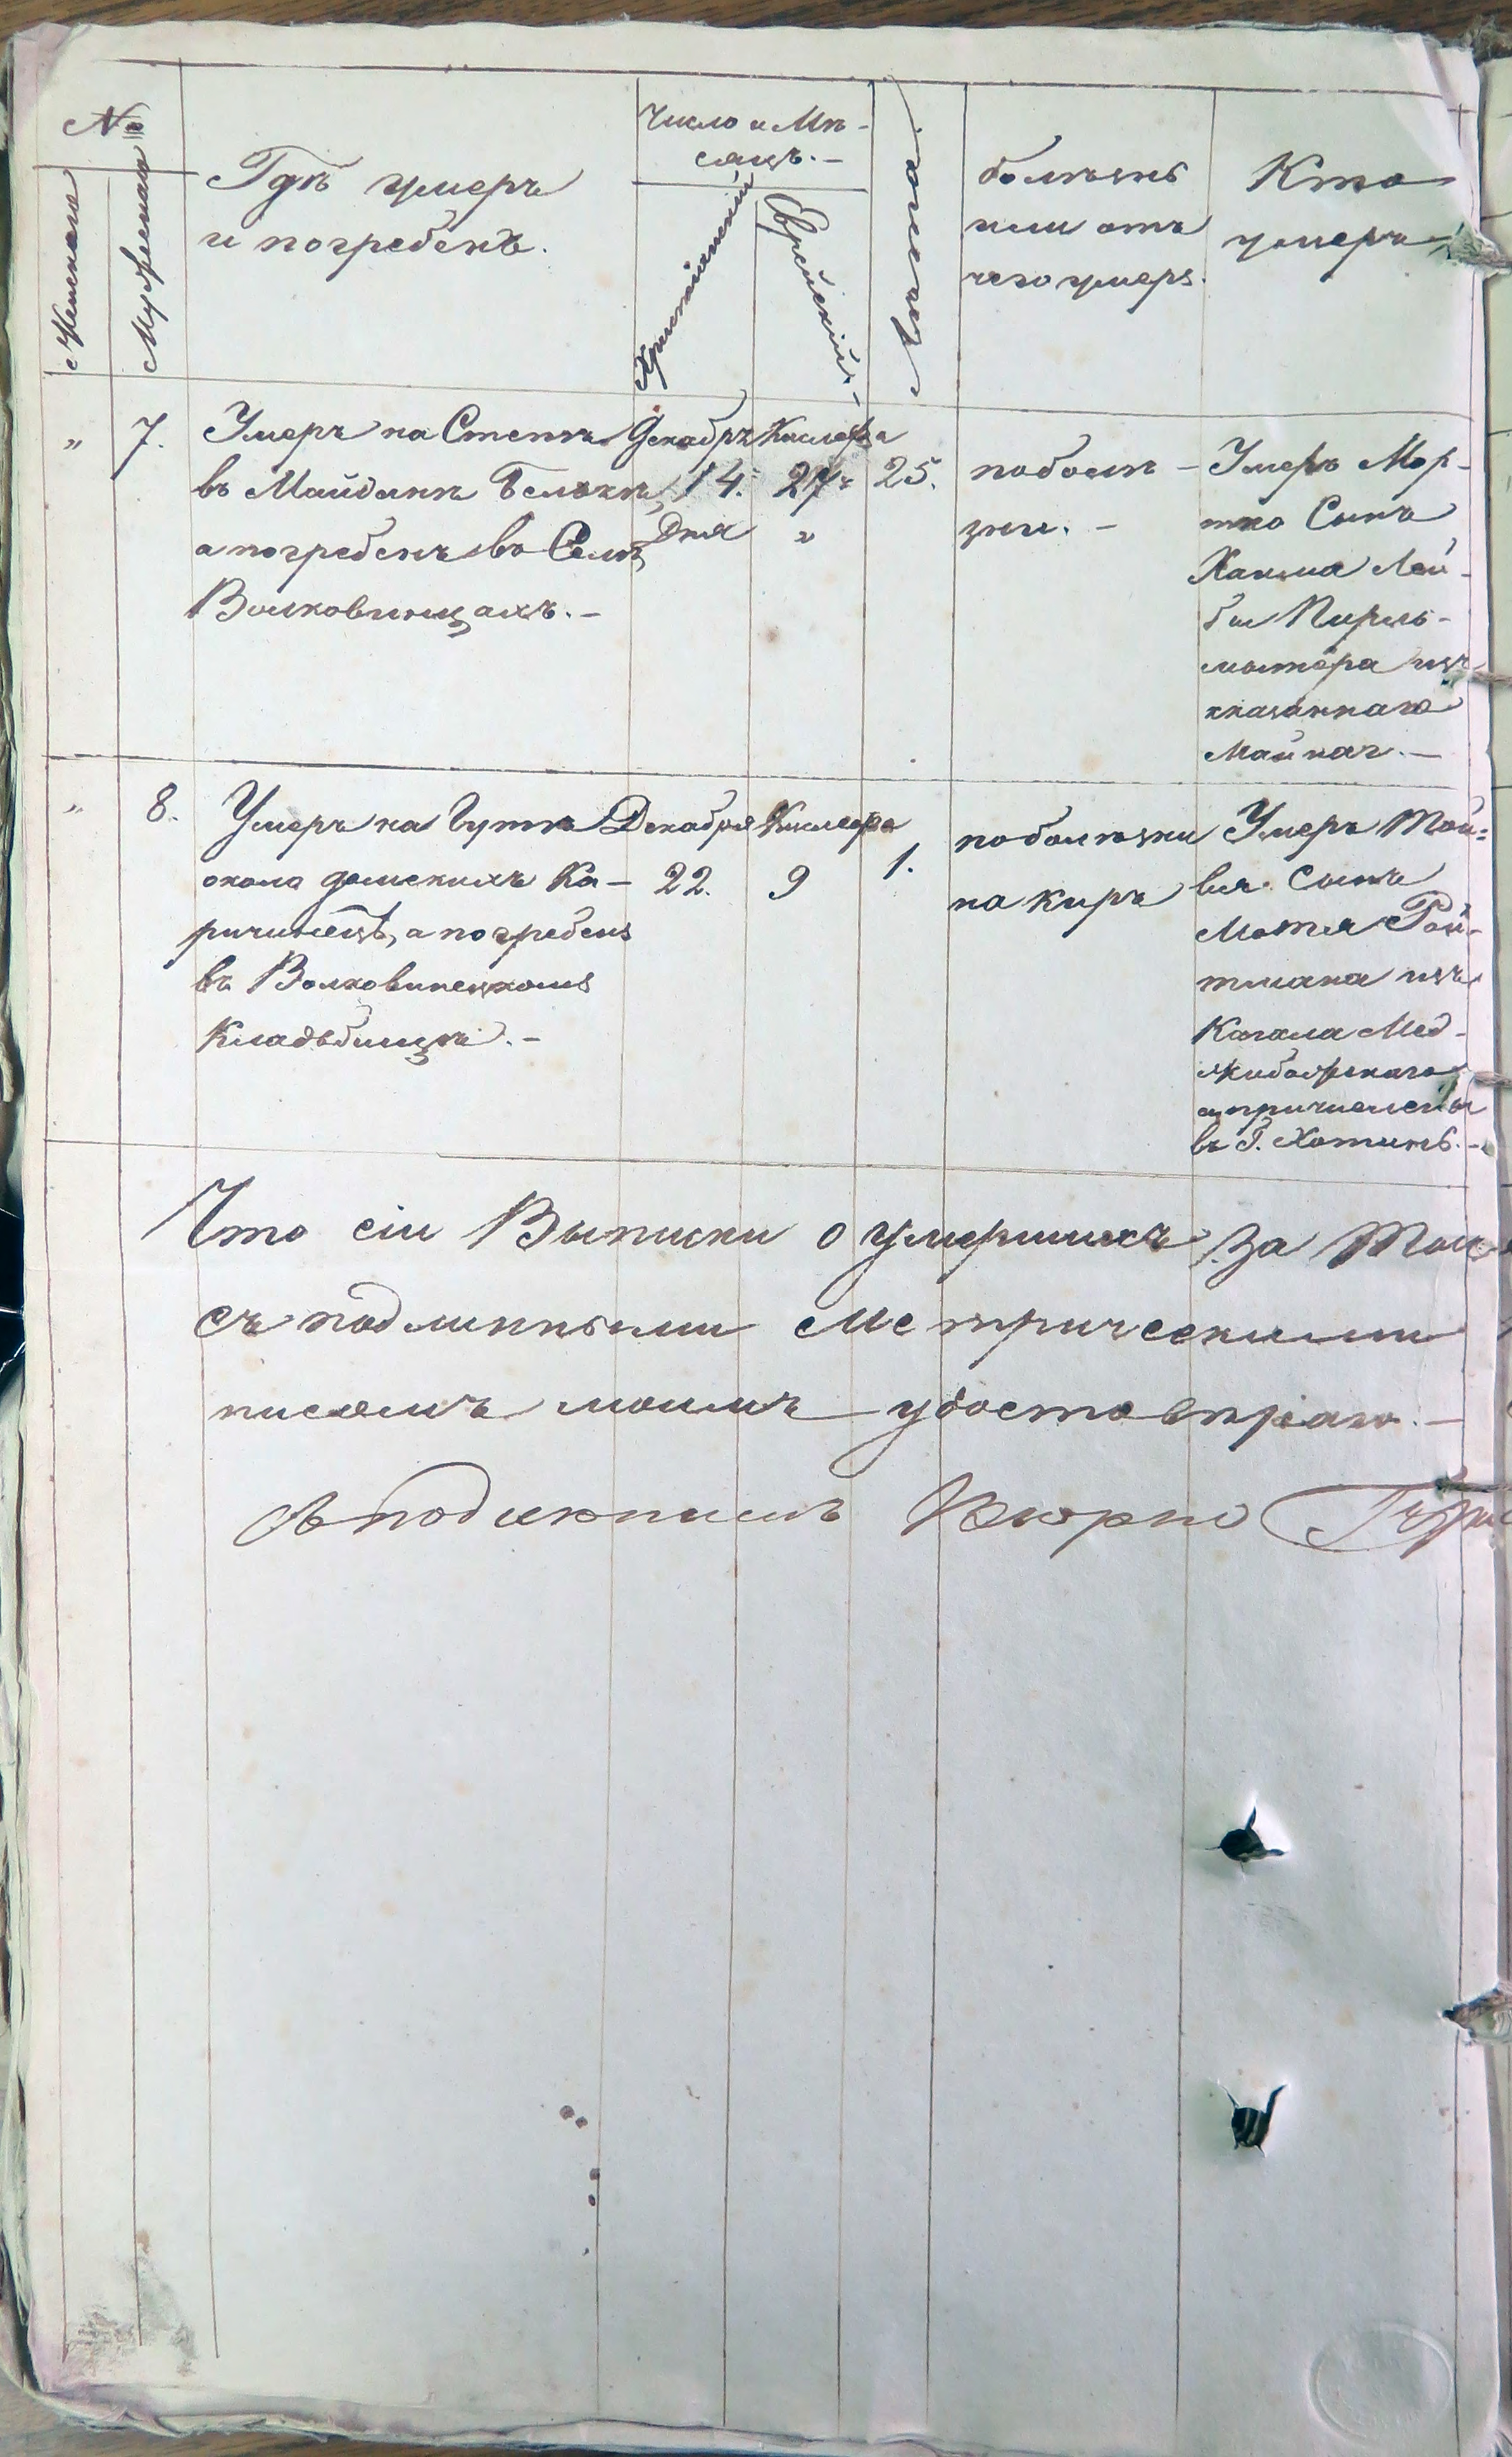 №
Женскаго
Мужескаго
Гдѣ умеръ
и погребенъ.
Число и Мѣ-
сяцъ. —
Христіянскій
Еврейскій —
болѣзнь
или отъ
чего умеръ.
Кто
умеръ
" 7. Умеръ на Степѣ
въ Майданѣ
а погребенъ въ Селѣ
Волковинцахъ. —
Декабръ
14.
Дня
Кислефа
27
"
25.
по болѣ-
зни. —
Умеръ Мор-
тко Сынъ
Хаима Лей-
бы Пирль-
мытера изъ
казаннаго
" 8. Умеръ на Гутѣ
окола Ка-
ричинецъ, а погребенъ
въ Волковинецкомъ
Кладьбищѣ. —
Декабря
22.
Кислефа
9
1.
по болѣзни
на киръ
Умеръ Мой-
Сынъ
Мотя Рой-
тмана изъ
Кагала Мед-
жибожскаго
а причислены
въ Г. Хотинѣ. —
Что сіи Выписки о умершихъ за
съ подлинными Метрическими
писомъ моимъ удостовѣряю. —